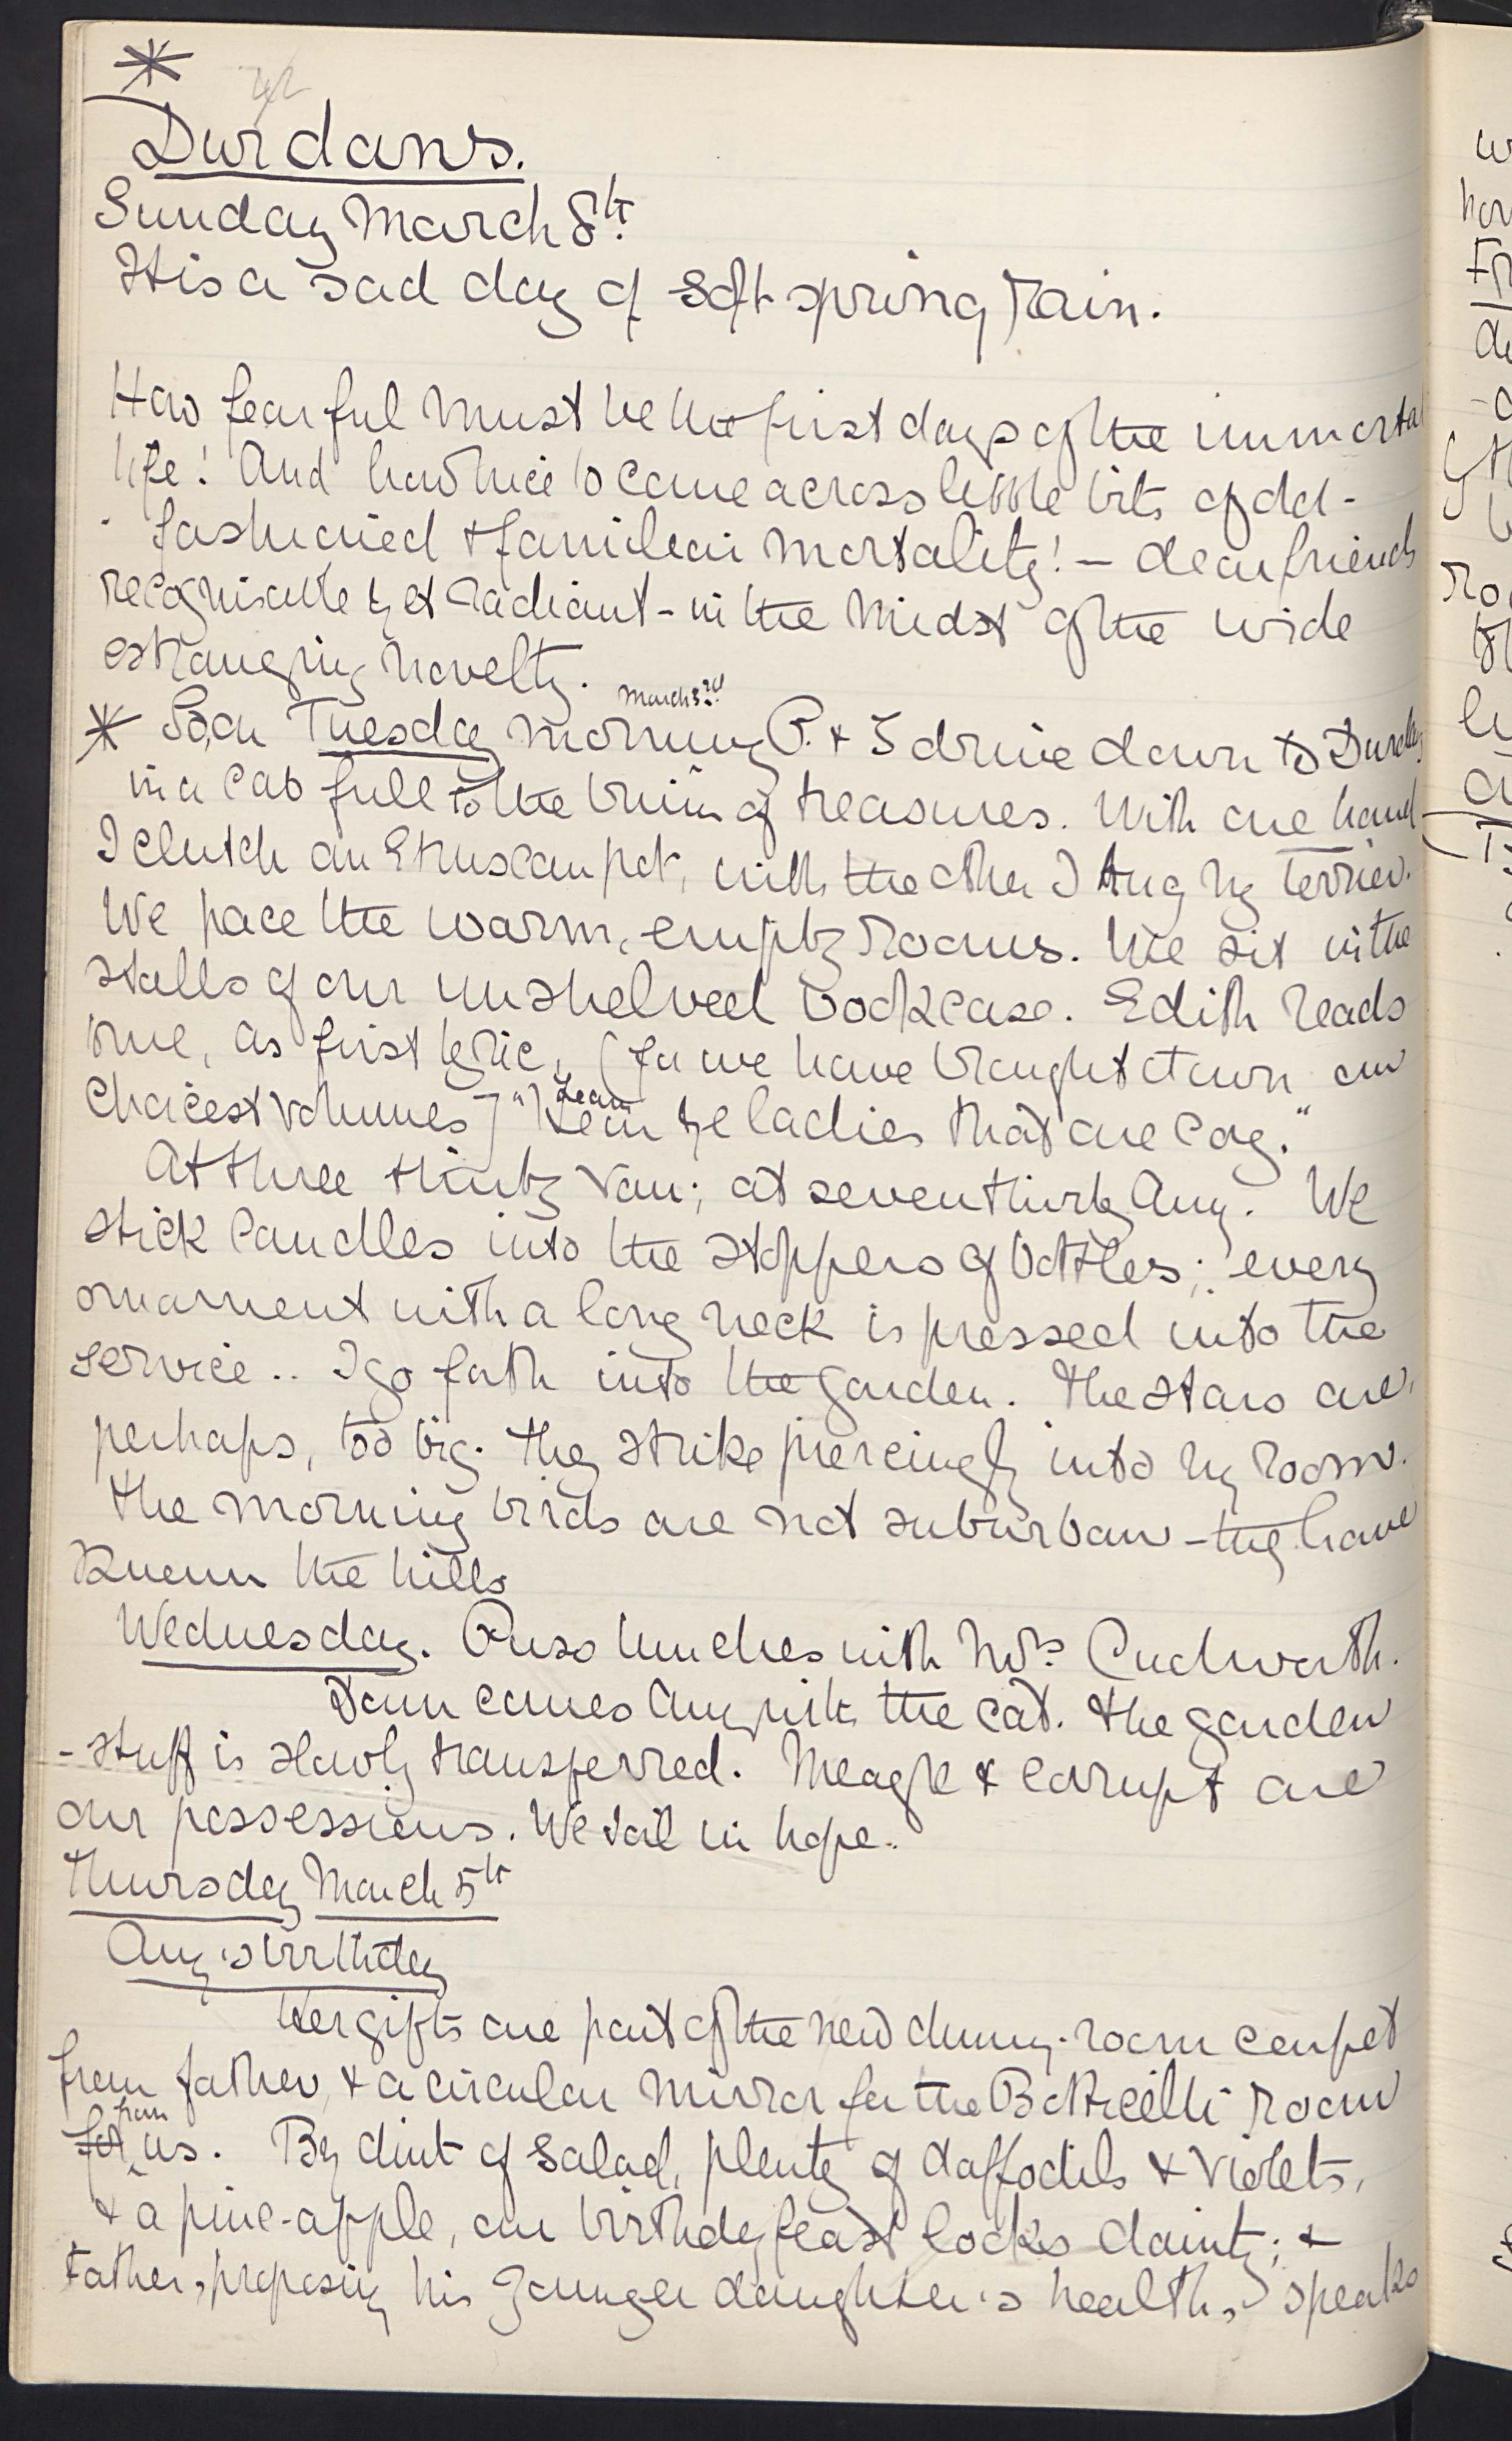 *
Durdans.
Sunday March 8th.
It is a sad day of soft spring rain.
How fearful must be the first days of the immortal
life! And how nice to come across little bits of old-
fashioned & familiar mortality! – dear friends
recognisable yet radiant – in the midst of the wide
estranging novelty.
March 3rd.
* So, on Tuesday morning P. & I drive down to Durdans
in a cab full to the brim of treasures. With one hand
I clutch an Etruscan pot, with the other I hug my terrier.
We pace the warm, empty rooms. We sit in the
stalls of our unshelved bookcase. Edith reads
me, as first lyric, (for we have brought down our
Learn
choicest volumes) "Learn ye ladies that are coy."
At three thirty van; at seven thirty Amy. We
stick candles into the stoppers of bottles; every
ornament with a long neck is pressed into the
service.. I go forth into the garden. The stars are,
perhaps, too big. They strike piercingly into my room.
The morning birds are not suburban – they have
known the hills
Wednesday. Puss lunches with Mrs Cudworth.
Down comes Amy with the cat. The garden
-stuff is slowly transferred. Meagre & corrupt are
our possessions. We sail in hope.
Thursday March 5th
Amy's birthday
Her gifts are part of the new dining-room carpet
from father, & a circular mirror for the Botticelli room
from
for us. By dint of salad, plenty of daffodils & violets,
& a pine-apple, our birthday feast looks dainty; &
father, proposing his younger daughter's health, speaks